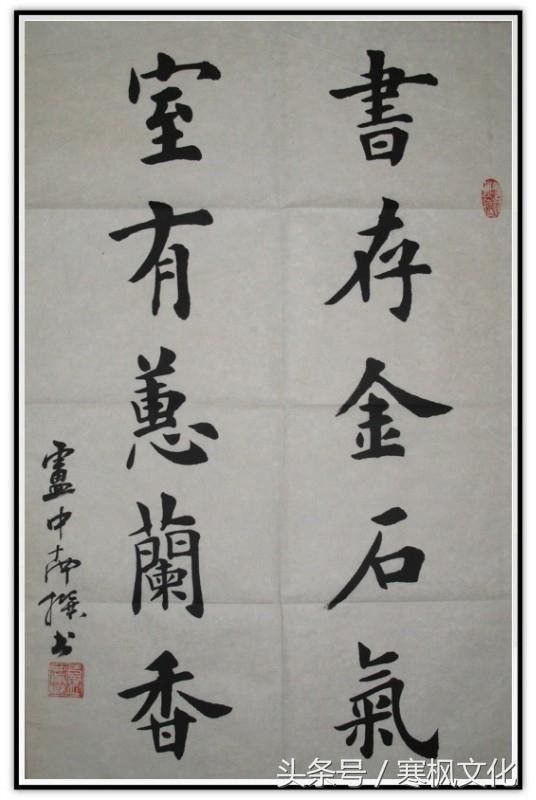 書存金石氣
室有蕙蘭香
盧中南撰书
头条号/寒枫文化